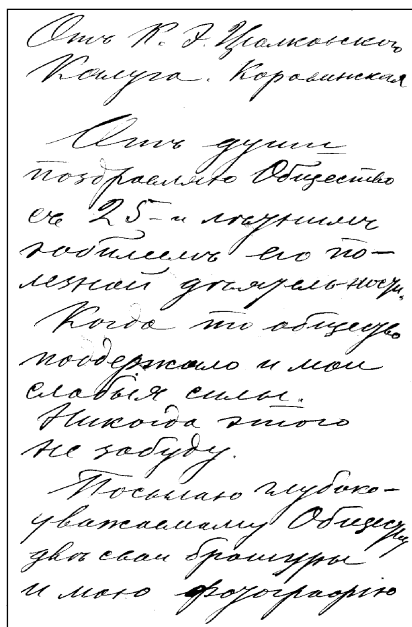 Отъ К. Э. Циолковскаго
Калуга. Коровинская
Отъ души
поздравляю Общество
съ 25-и лѣтнимъ
юбилеемъ его по-
лезной дѣятельности.
Когда то общество
поддержало и мои
слабыя силы.
Никогда этого
не забуду.
Посылаю глубоко-
уважаемому Обществу
двѣ свои брошуры
и мою фотографію